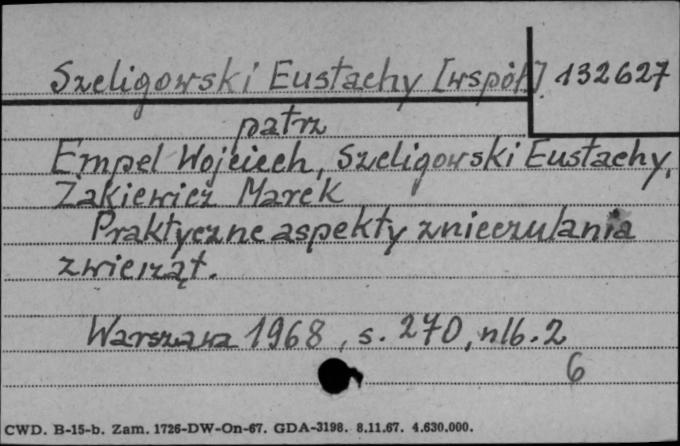 Szeligowski Eustachy [współ.] 132627
patrz
Empel Wojciech, Szeligowski Eustachy,
Żakiewicz Marek
Praktyczne aspekty znieczulania
zwierząt.
Warszawa 1968, s. 270, nlb. 2
6
CWD. B-15-b. Zam. 1726-DW-On-67. GDA-3198. 8.11.67. 4.630.000.